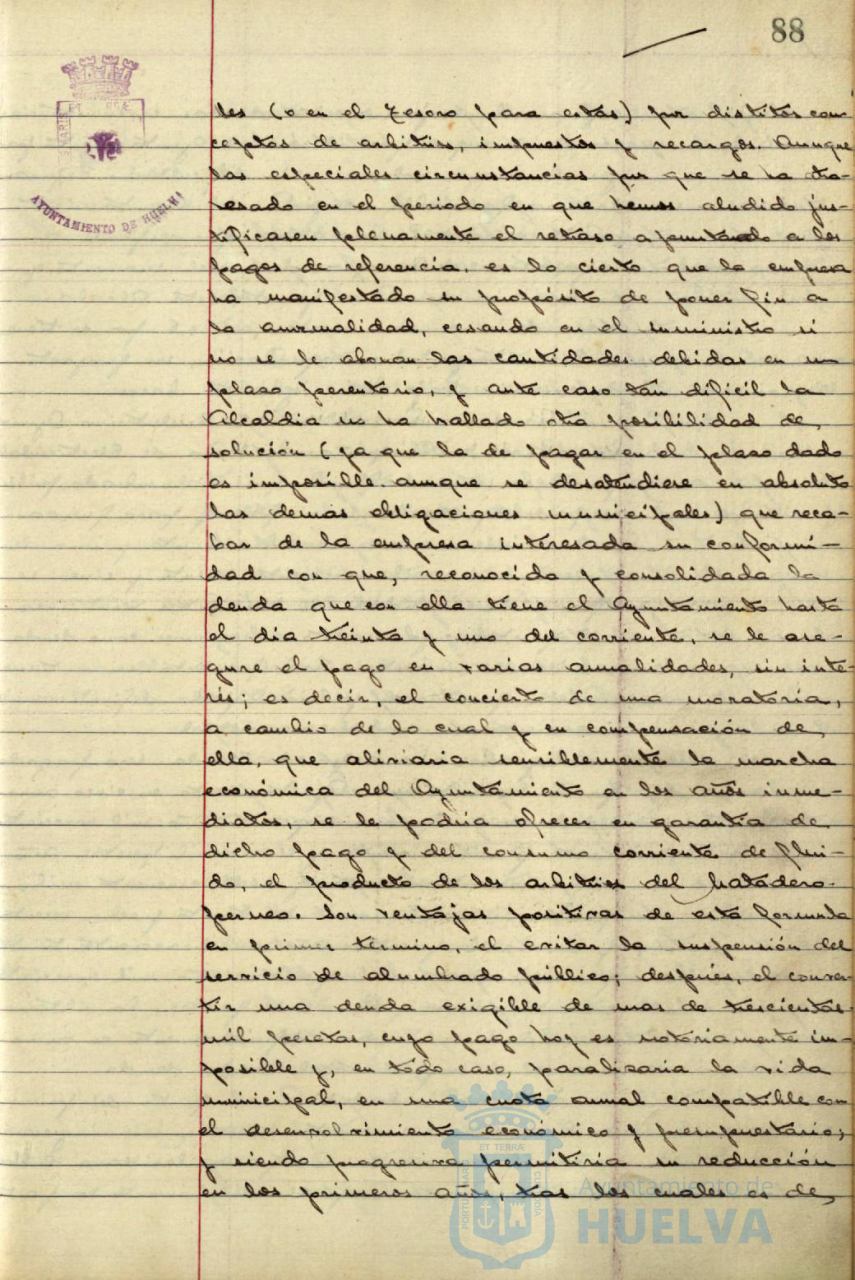 88
AYUNTAMIENTO DE HUELVA
les (o en el Tesoro para estas) por distitos con-
ceptos de arbitrios, impuestos y recargos. Aunque
las especiales circunstancias por que se ha atra-
vesado en el periodo en que hemos aludido jus-
tificasen plenamente el retraso apuntado a los
pagos de referencia, es lo cierto que la empresa
ha manifestado su propósito de poner fin a
la anormalidad, cesando en el suministro si
no se le abonan las cantidades debidas en un
plazo perentorio, y ante caso tan dificil la
Alcaldia no ha hallado otra posibilidad de
solución (ya que la de pagar en el plazo dado
es imposible aunque se desatendiese en absoluto
las demas obligaciones municipales) que reca-
bar de la empresa interesada su conformi-
dad con que, reconocida y consolidada la
deuda que con ella tiene el Ayuntamiento hasta
el dia treinta y uno del corriente, se le ase-
gure el pago en varias anualidades, sin inte-
rés; es decir, el concierto de una moratoria,
a cambio de lo cual y en compensación de
ella, que aliviaria sensiblemente la marcha
económica del Ayuntamiento en los años inme-
diatos, se le podria ofrecer en garantia de
dicho pago y del consumo corriente de flui-
do, el producto de los arbitrios del Matadero
perneo. Son ventajas positivas de esta formula
en primer término, el evitar la suspensión del
servicio de alumbrado público; después, el conver-
tir una deuda exigible de mas de trescientas
mil pesetas, cuyo pago hoy es notoriamente im-
posible y, en todo caso, paralizaria la vida
municipal, en una cuota anual compatible con
el desenvolvimiento económico y presupuestario;
y siendo progresiva permitiria su reducción
en los primeros años, tras los cuales es de
Ayuntamiento de
HUELVA